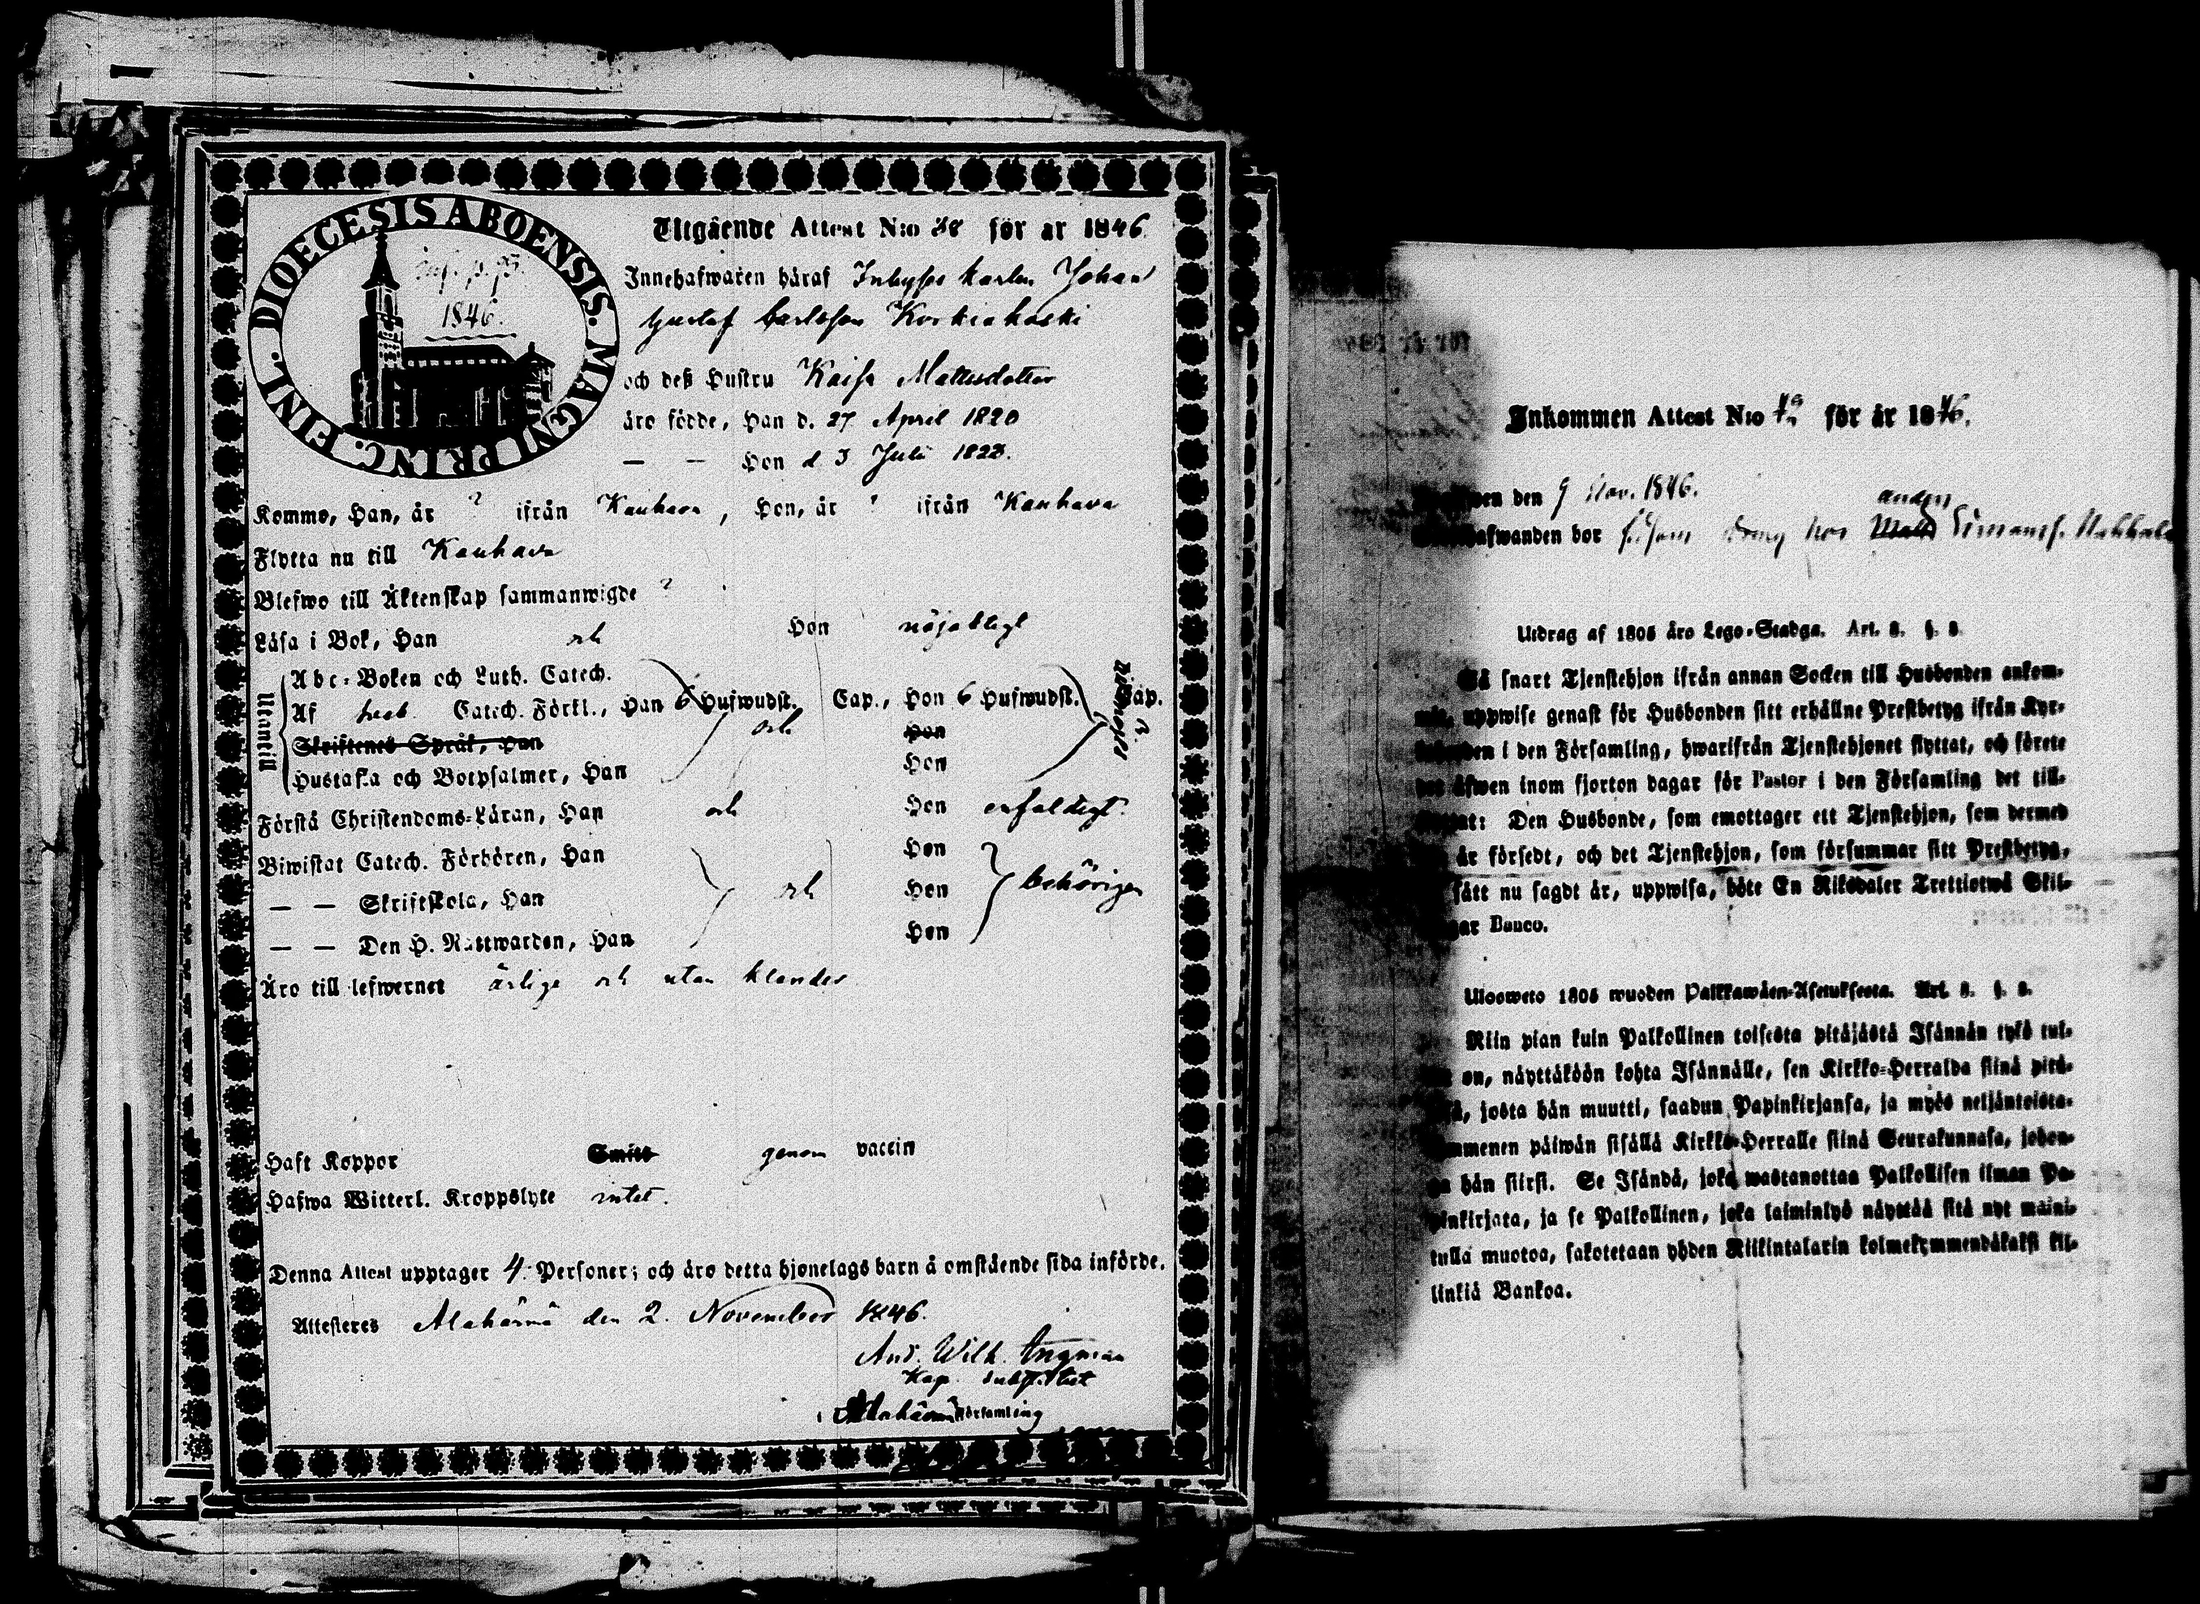 DIOECESIS ABOENSIS. MAGNI PRINC. FINL.
inf. p. 93.
1846.
Utgående Attest N:o 38 för år 1846
Innehafwaren häraf Inhyses karlen Johan
Gustaf Carlsson Korkiakoski
och deß Hustru Kaisa Mattsdotter
äro födde, Han d. 27 April 1820
— — Hon d 3 Juli 1823.
Komme, Han, år ? ifrån Kauhava, Hon, år ? ifrån Kauhava
Flytta nu till Kauhava
Blefwo till Äktenskap sammanwigde ?
Läsa i Bok, Han och Hon nöjaktigt
Utantill
Abc-Boken och Luth. Catech.
Af Catech. Förkl., Han 6 Hufwudst. Cap., Hon 6 Hufwudst. Cap.
Skriftenes Språk, Han och Hon
Hustafla och Botpsalmer, Han Hon
Förstå Christendoms-Läran, Han och Hon enfaldigt.
Biwistat Catech. Förhören, Han Hon
— — Skriftskola, Han och Hon behörigen
— — Den H. Nattwarden, Han Hon
Äro till lefwernet ärlige och utan klander
Haft Koppor Smitt genom vaccin
Hafwa Witterl. Kroppslyte intet.
Denna Attest upptager 4 Personer; och äro detta hjonelags barn å omstående sida införde.
Attesteras Alahärmä den 2. November 1846.
And. Wilh. Ingman
Kap. substitut
i Alahärmä Församling
Inkommen Attest N:o för år 1846.
den 9 Nov. 1846.
anders
bor hos Matts Simons.
Utdrag af 1805 års Lego-Stadga. Art. 8. §. 8.
Så snart Tjenstehjon ifrån annan Socken till Husbonden ankom-
mit, uppwise genast för Husbonden sitt erhållne Prestbetyg ifrån Kyr-
koherden i den Församling, hwarifrån Tjenstehjonet flyttat, och förete
det äfwen inom fjorton dagar för Pastor i den Församling det till-
flyttat: Den Husbonde, som emottager ett Tjenstehjon, som dermed
ej är försedt, och det Tjenstehjon, som försummar sitt Prestbetyg,
på sätt nu sagdt är, uppwisa, böte En Riksdaler Trettiotwå Skil-
lingar Banco.
Uloosweto 1805 wuoden Palkkawäen-Asetuksesta. Art. 8. §. 8.
Niin pian kuin Palkollinen toisesta pitäjästä Isännän tykö tul-
lut on, näyttäköön kohta Isännälle, sen Kirkko-Herralda siinä pitä-
jäsä, josta hän muutti, saadun Papinkirjansa, ja myös neljäntoista-
kymmenen päiwän sisällä Kirkko-Herralle siinä Seurakunnasa, johon-
ga hän siirsi. Se Isändä, joka wastanottaa Palkollisen ilman Pa-
pinkirjata, ja se Palkollinen, joka laiminlyö näyttää sitä nyt maini-
tulla muotoa, sakotetaan yhden Riikintalarin kolmekymmendäkaksi kil-
linkiä Bankoa.